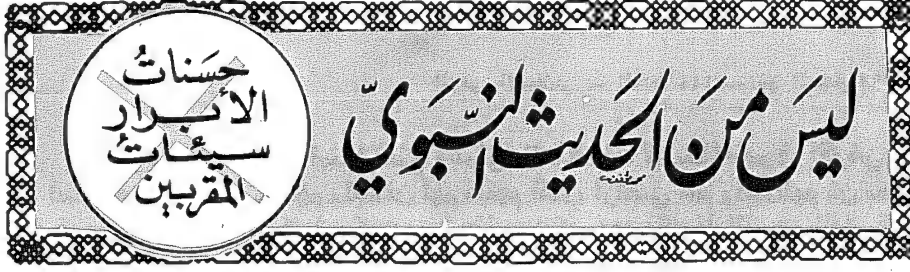 ليسَ منَ الحَديثِ النَّبَويّ
حسَناتُ
الأبرار
سيئاتُ
المقربين